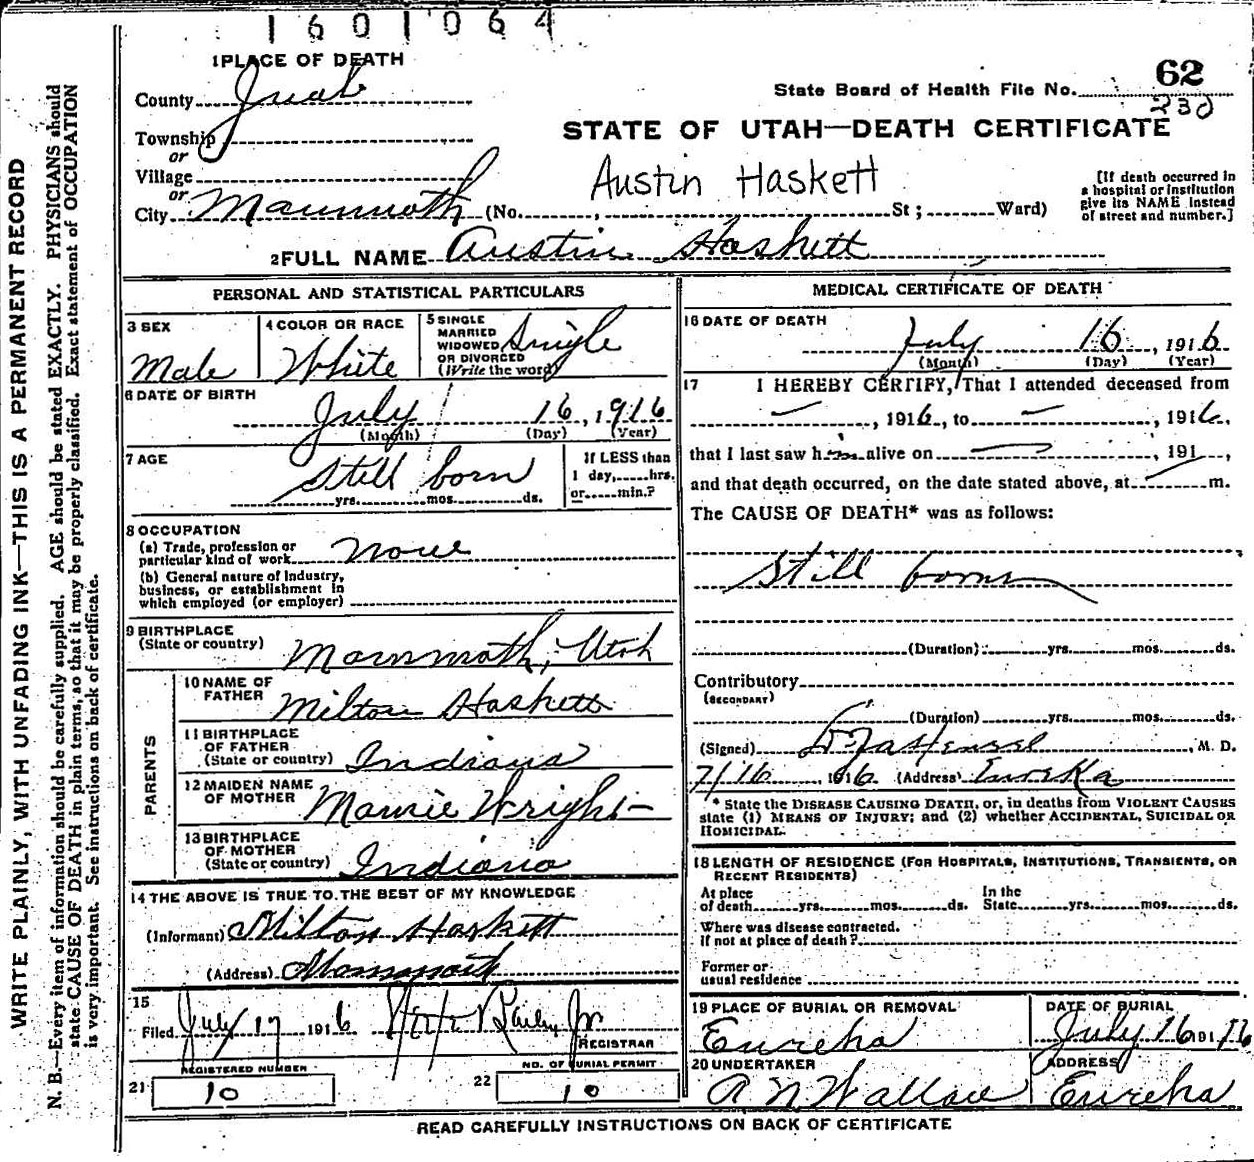 1601064
1 PLACE OF DEATH
County Juab
Township
or
Village
or
City Mammoth (No. , St ; Ward)
State Board of Health File No. 62
230
STATE OF UTAH—DEATH CERTIFICATE
Austin Haskett
[If death occurred in
a hospital or institution
give its NAME instead
of street and number.]
2 FULL NAME Austin Haskett
PERSONAL AND STATISTICAL PARTICULARS
3 SEX
Male
4 COLOR OR RACE
White
5 SINGLE
MARRIED
WIDOWED
OR DIVORCED
(Write the word)
Single
6 DATE OF BIRTH
July 16, 1916
(Month) (Day) (Year)
7 AGE
Still born
yrs. mos. ds.
If LESS than
1 day, hrs.
or min.?
8 OCCUPATION
(a) Trade, profession or
particular kind of work None
(b) General nature of Industry,
business, or establishment in
which employed (or employer)
9 BIRTHPLACE
(State or country) Mammoth, Utah
PARENTS
10 NAME OF
FATHER Milton Haskett
11 BIRTHPLACE
OF FATHER
(State or country) Indiana
12 MAIDEN NAME
OF MOTHER Mamie Wright
13 BIRTHPLACE
OF MOTHER
(State or country) Indiana
14 THE ABOVE IS TRUE TO THE BEST OF MY KNOWLEDGE
(Informant) Milton Haskett
(Address) Mammoth
15
Filed July 17 1916 Bailey Jr
REGISTRAR
REGISTERED NUMBER
21 10
NO. OF BURIAL PERMIT
22 10
MEDICAL CERTIFICATE OF DEATH
16 DATE OF DEATH
July 16, 1916
(Month) (Day) (Year)
17 I HEREBY CERTIFY, That I attended deceased from
— , 1916, to — , 1916,
that I last saw him alive on — , 191 ,
and that death occurred, on the date stated above, at m.
The CAUSE OF DEATH* was as follows:
Still born
(Duration) yrs. mos. ds.
Contributory
(SECONDARY)
(Duration) yrs. mos. ds.
(Signed) , M. D.
7/16 1916 (Address) Eureka
* State the DISEASE CAUSING DEATH, or, in deaths from VIOLENT CAUSES
state (1) MEANS OF INJURY; and (2) whether ACCIDENTAL, SUICIDAL OR
HOMICIDAL.
18 LENGTH OF RESIDENCE (FOR HOSPITALS, INSTITUTIONS, TRANSIENTS, OR
RECENT RESIDENTS)
At place
of death yrs. mos. ds.
In the
State yrs. mos. ds.
Where was disease contracted.
If not at place of death?
Former or
usual residence
19 PLACE OF BURIAL OR REMOVAL
Eureka
DATE OF BURIAL
July 16 1916
20 UNDERTAKER
A N Wallace
ADDRESS
Eureka
READ CAREFULLY INSTRUCTIONS ON BACK OF CERTIFICATE
WRITE PLAINLY, WITH UNFADING INK—THIS IS A PERMANENT RECORD
N. B.—Every item of information should be carefully supplied. AGE should be stated EXACTLY. PHYSICIANS should
state CAUSE OF DEATH in plain terms, so that it may be properly classified. Exact statement of OCCUPATION
is very important. See instructions on back of certificate.